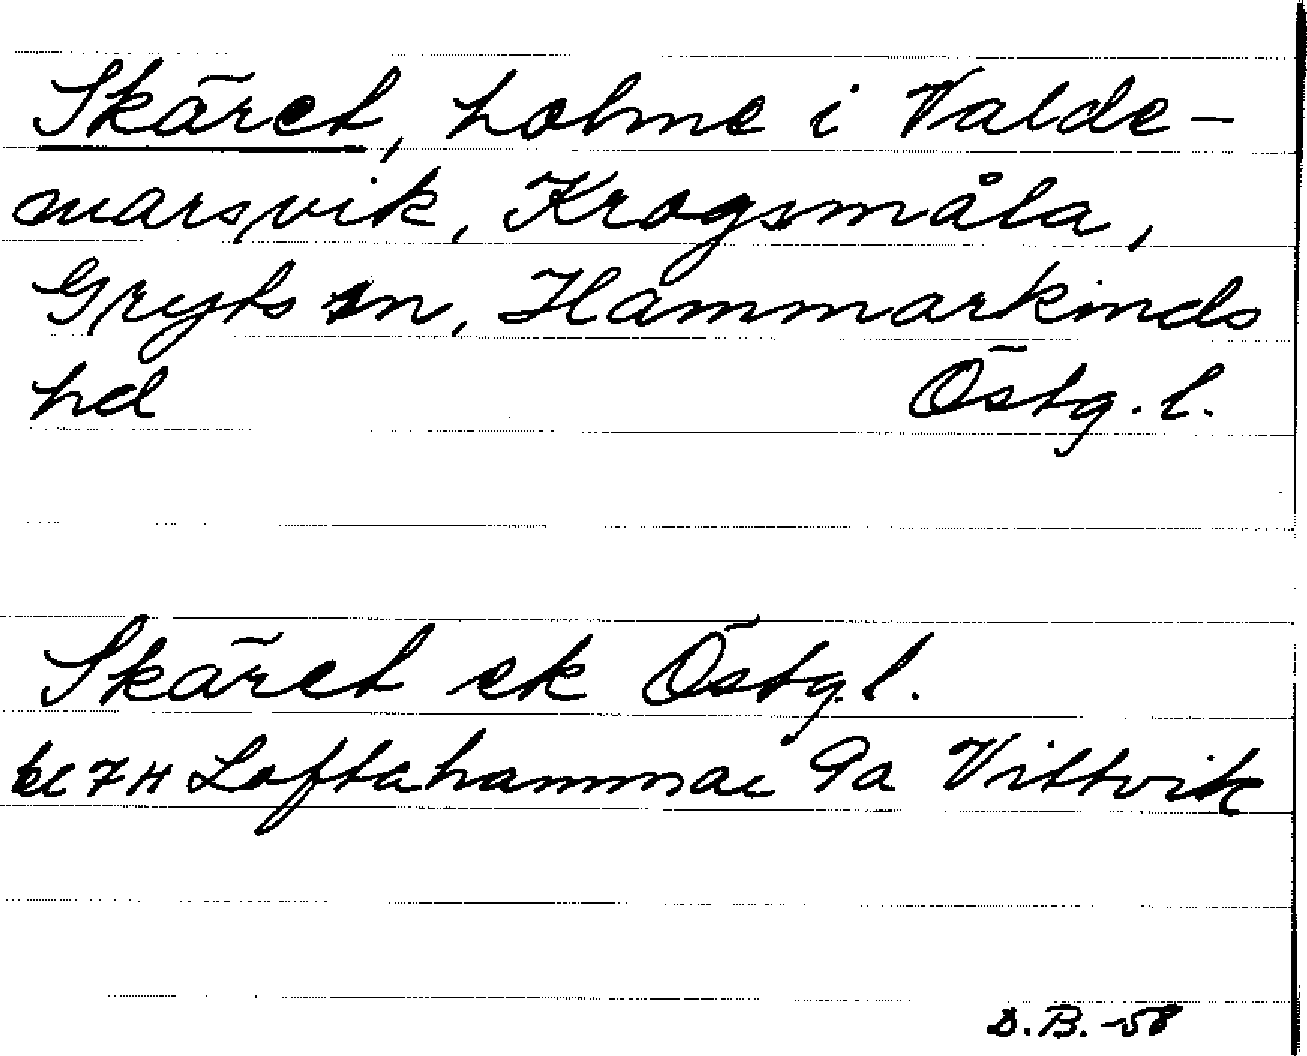 Skäret, holme i Valde-
marsvik, Krogsmåla,
Gryts sn, Hammarkinds
hd Östg. l.
Skäret ek Östg l.
bl 7H Loftahammar 9a Vittvik
D.B. -58